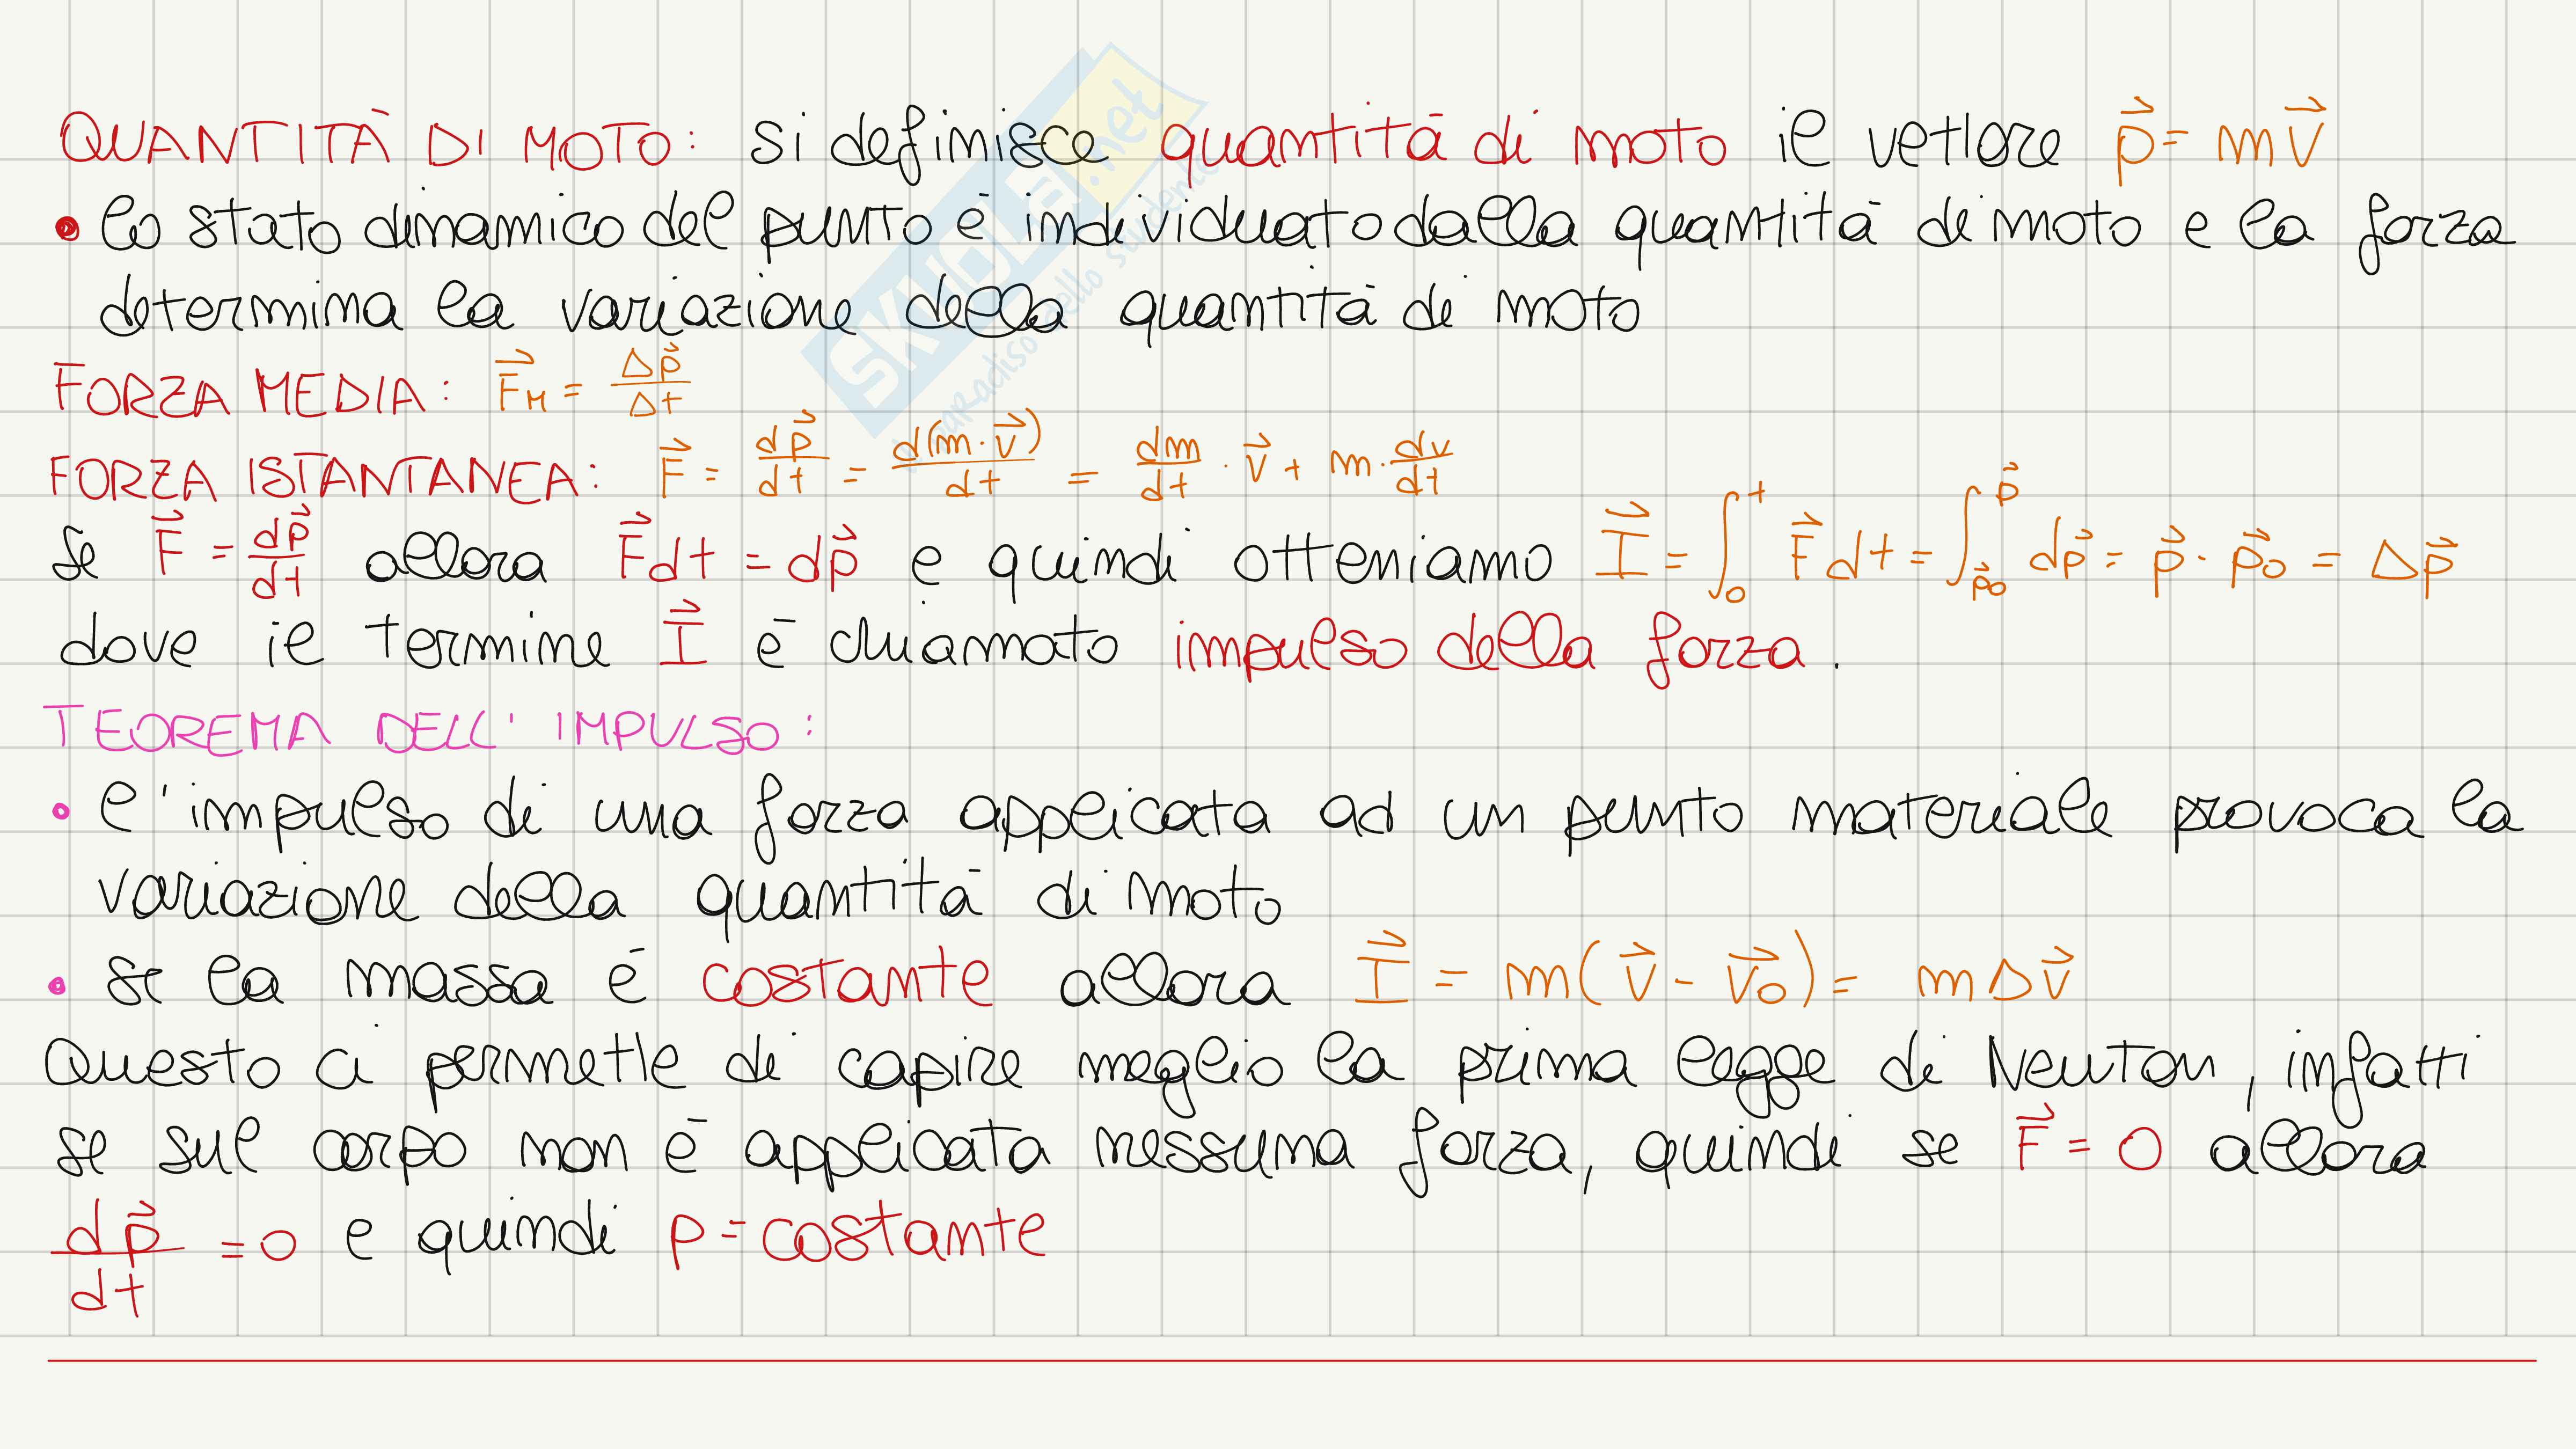 QUANTITÀ DI MOTO: si definisce quantità di moto il vettore p⃗ = m v⃗
• lo stato dinamico del punto è individuato dalla quantità di moto e la forza
determina la variazione della quantità di moto
FORZA MEDIA: F⃗_M = Δp⃗/Δt
FORZA ISTANTANEA: F⃗ = dp⃗/dt = d(m·v⃗)/dt = dm/dt · v⃗ + m · dv/dt
se F⃗ = dp⃗/dt allora F⃗dt = dp⃗ e quindi otteniamo I⃗ = ∫₀ᵗ F⃗dt = ∫_{p⃗₀}^{p⃗} dp⃗ = p⃗ · p⃗₀ = Δp⃗
dove il termine I⃗ è chiamato impulso della forza.
TEOREMA DELL'IMPULSO:
• l'impulso di una forza applicata ad un punto materiale provoca la
variazione della quantità di moto
• se la massa è costante allora I⃗ = m(v⃗ - v⃗₀) = mΔv⃗
Questo ci permette di capire meglio la prima legge di Newton, infatti
se sul corpo non è applicata nessuna forza, quindi se F⃗ = 0 allora
dp⃗/dt = 0 e quindi p = costante
SKUOLA.net